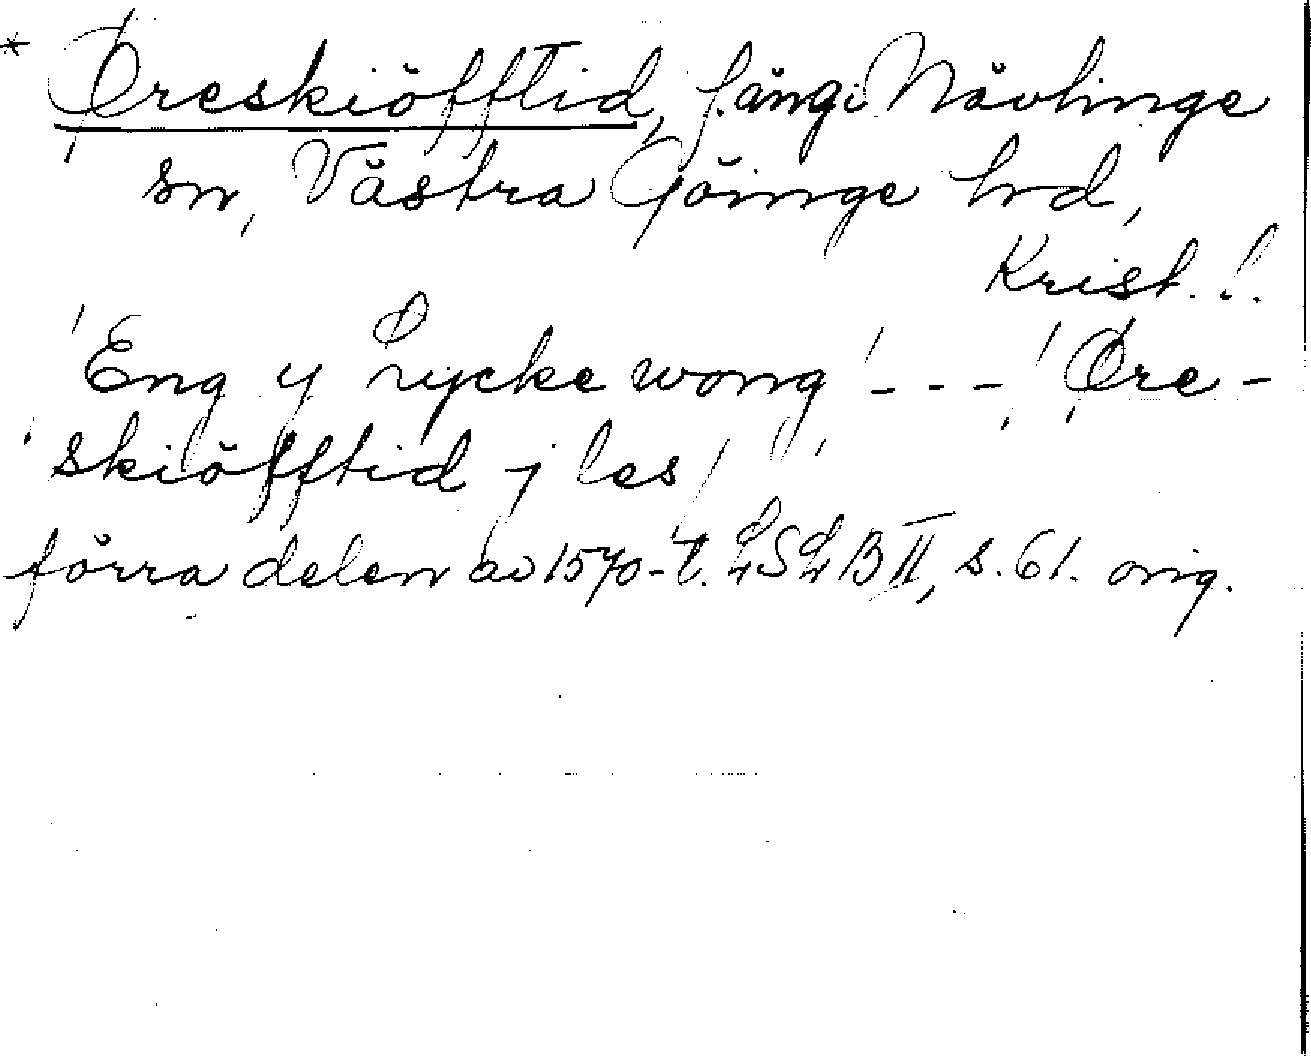 * Øreskiöfftid, f. äng i Nävlinge
sn, Västra Göinge hd,
Krist. l.
'Eng y Lycke wong' - - - 'Øre-
skiöfftid j les'
förra delen av 1570-t. LSLB II, s. 61. orig.